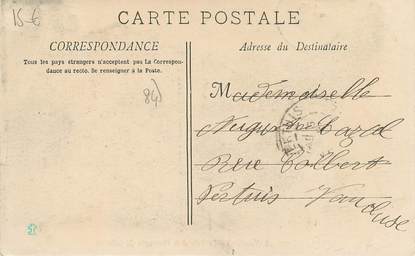 15-€
CARTE POSTALE
CORRESPONDANCE
Tous les pays étrangers n'acceptent pas La Correspon-
dance au recto. Se renseigner à la Poste.
84)
Adresse du Destinataire
Mademoiselle
Cazal
Rue Colbert
Pertuis Vaucluse